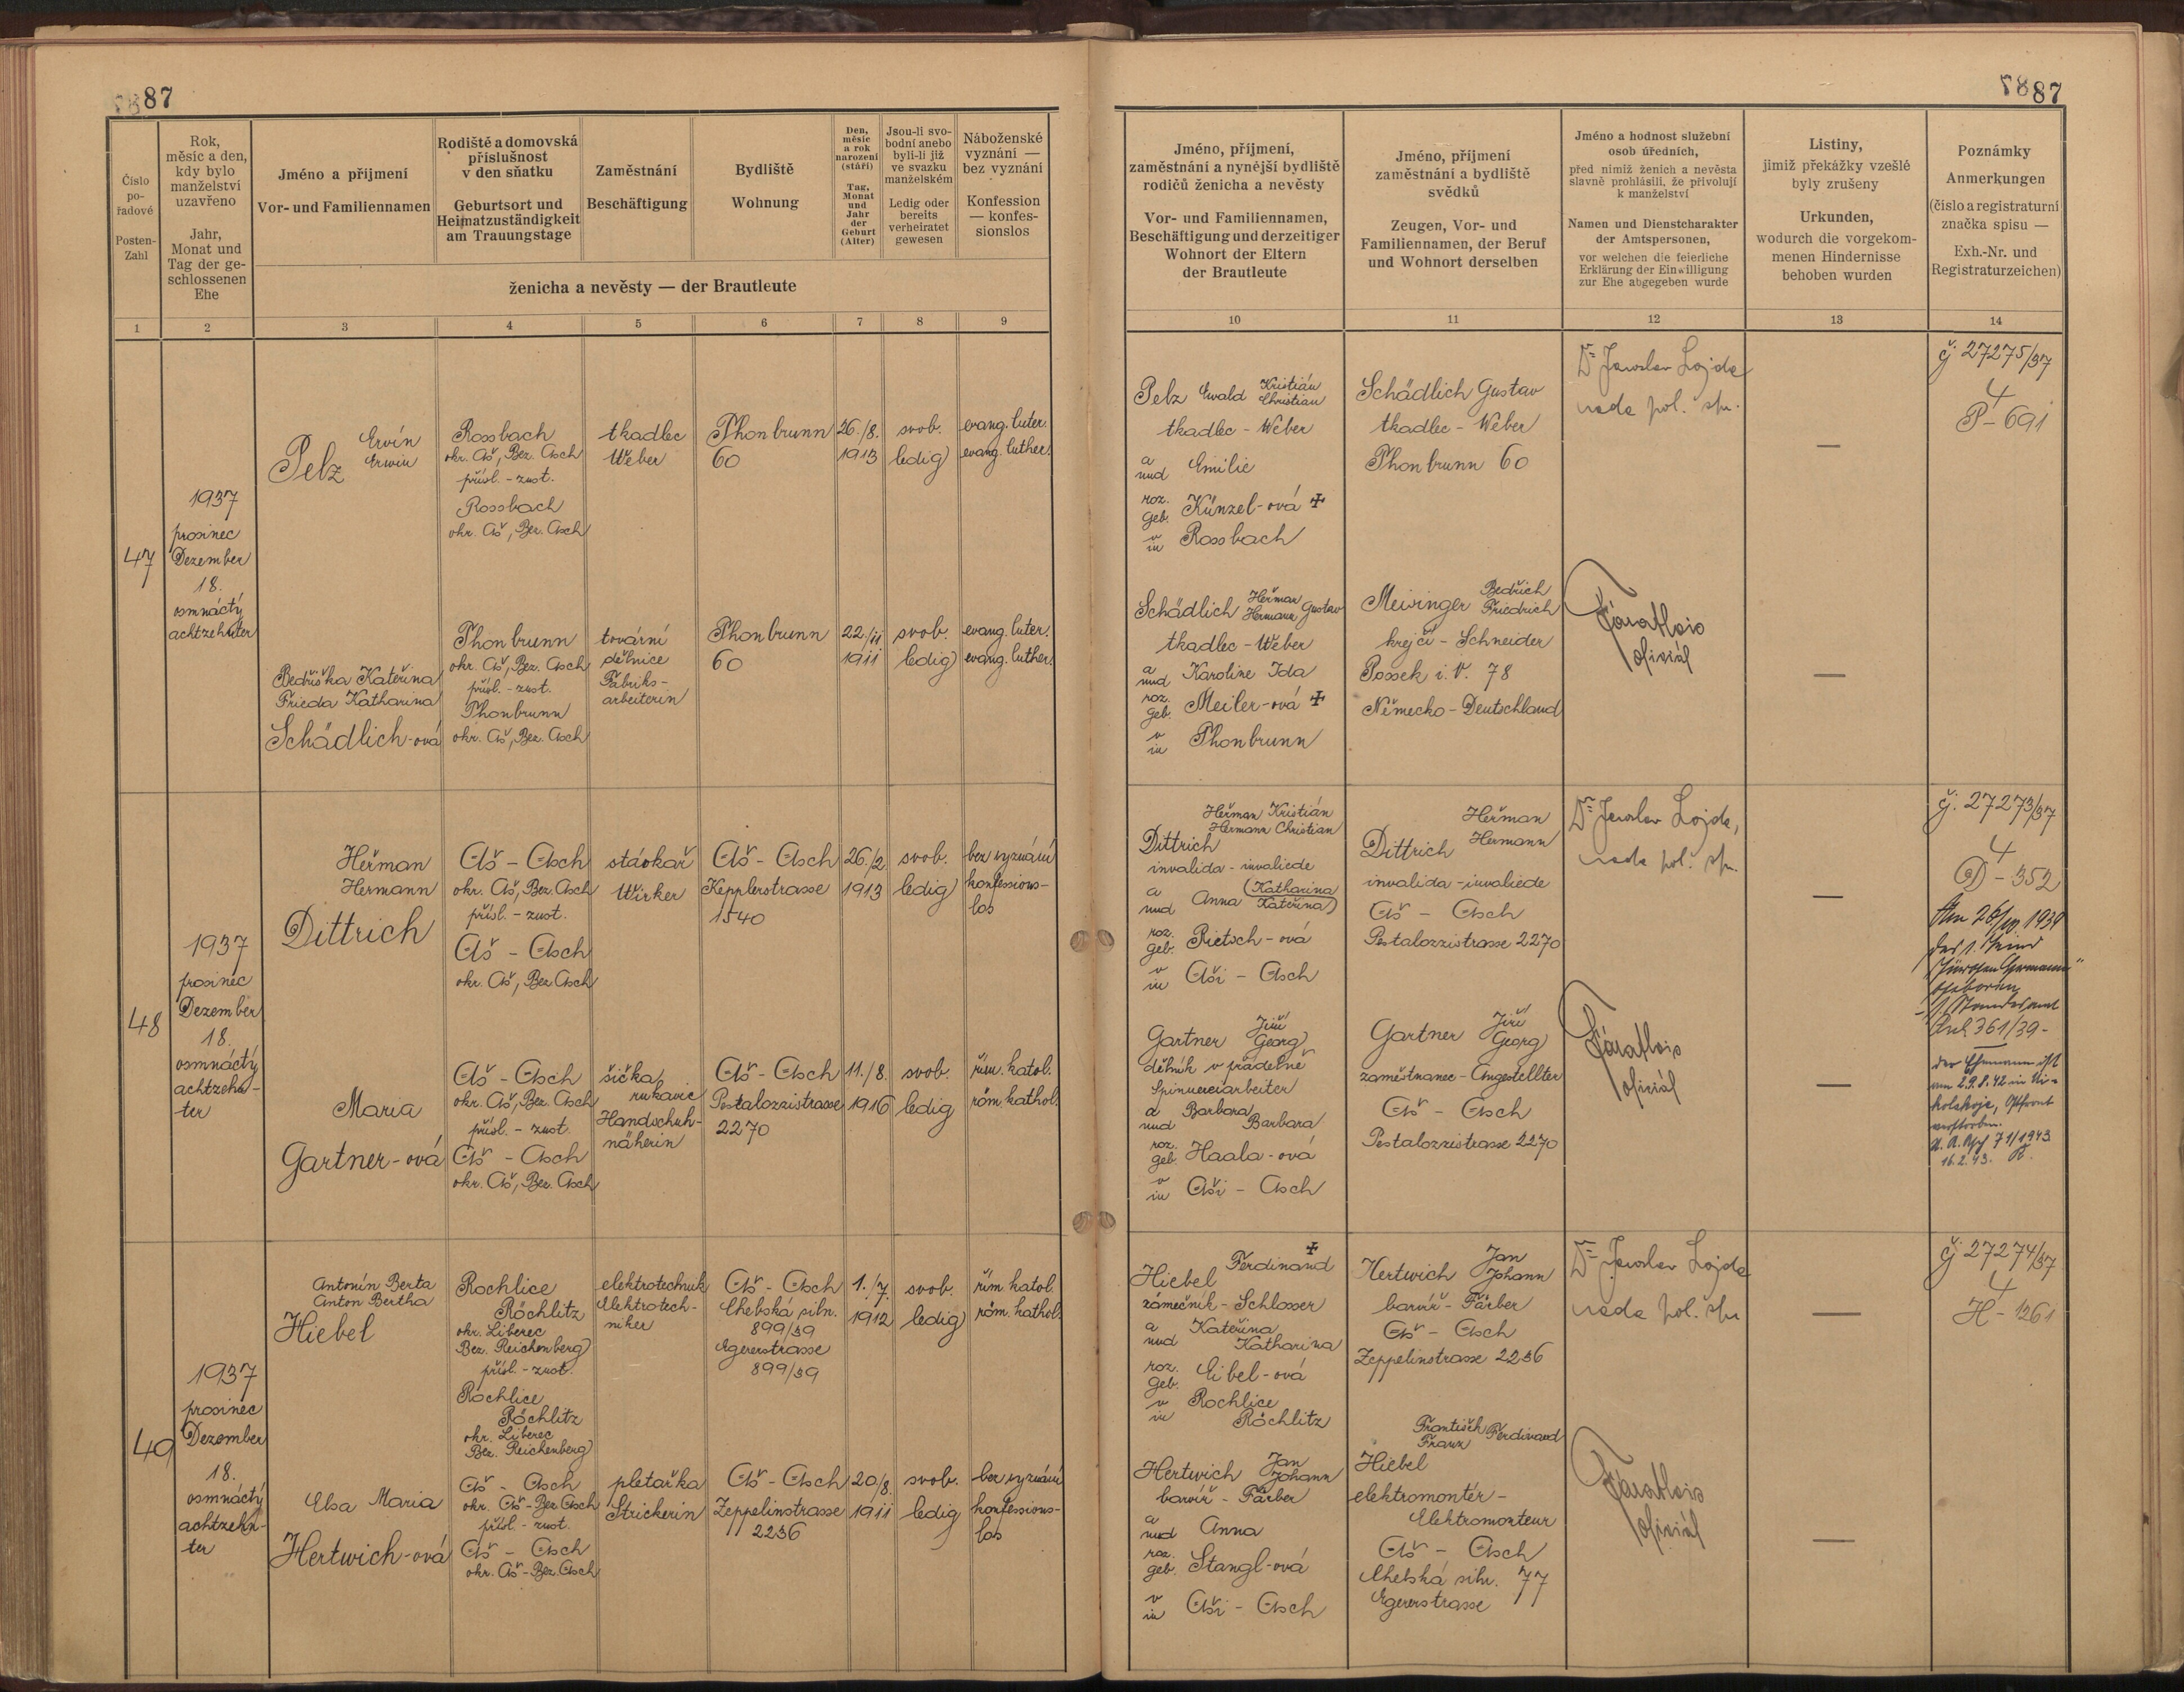 87
87
Číslo
po-
řadové
Posten-
Zahl
Rok,
měsíc a den,
kdy bylo
manželství
uzavřeno
Jahr,
Monat und
Tag der ge-
schlossenen
Ehe
Jméno a příjmení
Vor- und Familiennamen
Rodiště a domovská
příslušnost
v den sňatku
Geburtsort und
Heimatzuständigkeit
am Trauungstage
Zaměstnání
Beschäftigung
Bydliště
Wohnung
Den,
měsíc
a rok
narození
(stáří)
Tag,
Monat
und
Jahr
der
Geburt
(Alter)
Jsou-li svo-
bodní anebo
byli-li již
ve svazku
manželském
Ledig oder
bereits
verheiratet
gewesen
Náboženské
vyznání —
bez vyznání
Konfession
— konfes-
sionslos
ženicha a nevěsty — der Brautleute
Jméno, příjmení,
zaměstnání a nynější bydliště
rodičů ženicha a nevěsty
Vor- und Familiennamen,
Beschäftigung und derzeitiger
Wohnort der Eltern
der Brautleute
Jméno, příjmení
zaměstnání a bydliště
svědků
Zeugen, Vor- und
Familiennamen, der Beruf
und Wohnort derselben
Jméno a hodnost služební
osob úředních,
před nimiž ženich a nevěsta
slavně prohlásili, že přivolují
k manželství
Namen und Dienstcharakter
der Amtspersonen,
vor welchen die feierliche
Erklärung der Einwilligung
zur Ehe abgegeben wurde
Listiny,
jimiž překážky vzešlé
byly zrušeny
Urkunden,
wodurch die vorgekom-
menen Hindernisse
behoben wurden
Poznámky
Anmerkungen
(číslo a registraturní
značka spisu —
Exh.-Nr. und
Registraturzeichen)
1 2 3 4 5 6 7 8 9 10 11 12 13 14
47
1937
prosinec
Dezember
18.
osmnáctý
achtzehnter
Ervín
Erwin
Pelz
Rossbach
okr. Aš, Bez. Asch
přísl. - zust.
Rossbach
okr. Aš, Bez. Asch
tkadlec
Weber
Thonbrunn
60
26./8.
1913
svob.
ledig
evang. luter.
evang. luther.
Pelz Ewald Kristián
Christian
tkadlec - Weber
a
und Emilie
roz.
geb. Künzel-ová ✝
v
in Rossbach
Schädlich Gustav
tkadlec - Weber
Thonbrunn 60
Dr Jaroslav Lojda
rada pol. spr.
—
čj. 27275/37
4
P-691
Bedřiška Kateřina
Frieda Katharina
Schädlich-ová
Thonbrunn
okr. Aš, Bez. Asch
přísl. - zust.
Thonbrunn
okr. Aš, Bez. Asch
tovární
dělnice
Fabriks-
arbeiterin
Thonbrunn
60
22./11
1911
svob.
ledig
evang. luter.
evang. luther.
Schädlich Heřman
Hermann Gustav
tkadlec - Weber
a
und Karoline Ida
roz.
geb. Meiler-ová ✝
v
in Thonbrunn
Meiringer Bedřich
Friedrich
krejčí - Schneider
Possek i. V. 78
Německo - Deutschland
oficiál
—
48
1937
prosinec
Dezember
18.
osmnáctý
achtzehn-
ter
Heřman
Hermann
Dittrich
Aš - Asch
okr. Aš, Bez. Asch
přísl. - zust.
Aš - Asch
okr. Aš, Bez Asch
stávkař
Wirker
Aš - Asch
Kepplerstrasse
1540
26./2.
1913
svob.
ledig
bez vyznání
konfessions-
los
Heřman Kristián
Hermann Christian
Dittrich
invalida - invaliede
a
und Anna (Katharina
Kateřina)
roz.
geb. Rietsch-ová
v
in Aši - Asch
Heřman
Hermann
Dittrich
invalida - invaliede
Aš - Asch
Pestalozzistrasse 2270
Dr Jaroslav Lojda,
rada pol. spr.
—
čj. 27273/37
4
D-352
361/39-
der Ehemann ist
am 29.8.42 in Ni-
kolskoje, Ostfront
verstorben.
71/1943
16.2.43.
Maria
Gartner-ová
Aš - Asch
okr. Aš, Bez. Asch
přísl. - zust.
Aš - Asch
okr. Aš, Bez. Asch
šička
rukavic
Handschuh-
näherin
Aš - Asch
Pestalozzistrasse
2270
11./8.
1916
svob.
ledig
řím. katol.
röm. kathol.
Gartner Jiří
Georg
dělník v přádelně
Spinnereiarbeiter
a Barbora
und Barbara
roz.
geb. Haala-ová
v
in Aši - Asch
Gartner Jiří
Georg
zaměstnanec - Angestellter
Aš - Asch
Pestalozzistrasse 2270
oficiál
—
49
1937
prosinec
Dezember
18.
osmnáctý
achtzehn-
ter
Antonín Berta
Anton Bertha
Hiebel
Rochlice
Röchlitz
okr. Liberec
Bez. Reichenberg
přísl. - zust.
Rochlice
Röchlitz
okr. Liberec
Bez. Reichenberg
elektrotechnik
Elektrotech-
niker
Aš - Asch
Chebská siln.
899/39
Egererstrasse
899/39
1./7.
1912
svob.
ledig
řím. katol.
röm. kathol.
✝
Ferdinand
Hiebel
zámečník - Schlosser
a Kateřina
und Katharina
roz.
geb. Eibel-ová
v Rochlice
in Röchlitz
Hertwich Jan
Johann
barvíř - Färber
Aš - Asch
Zeppelinstrasse 2236
Dr Jaroslav Lojda
rada pol. spr
—
čj. 27274/37
4
H-1261
Elsa Maria
Hertwich-ová
Aš - Asch
okr. Aš - Bez Asch
přísl. - zust.
Aš - Asch
okr. Aš - Bez. Asch
pletařka
Strickerin
Aš - Asch
Zeppelinstrasse
2236
20/8.
1911
svob.
ledig
bez vyznání
konfessions-
los
Hertwich Jan
Johann
barvíř - Färber
a
und Anna
roz.
geb. Stangl-ová
v
in Aši - Asch
František
Franz Ferdinand
Hiebel
elektromontér -
Elektromonteur
Aš - Asch
Chebská siln. 77
Egererstrasse
oficiál
—